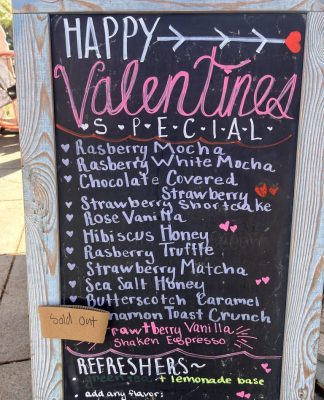 HAPPY
Valentines
S•P•E•C•I•A•L•
Rasberry Mocha
Rasberry White Mocha
Chocolate Covered
Strawberry
Strawberry Shortcake
Rose Vanilla
Hibiscus Honey
Rasberry Truffle
Strawberry Matcha
Sea Salt Honey
Butterscotch Caramel
Cinnamon Toast Crunch
Sold Out
Strawtberry Vanilla
Shaken Esspresso
REFRESHERS~
+ lemonade base
• add any flavor: